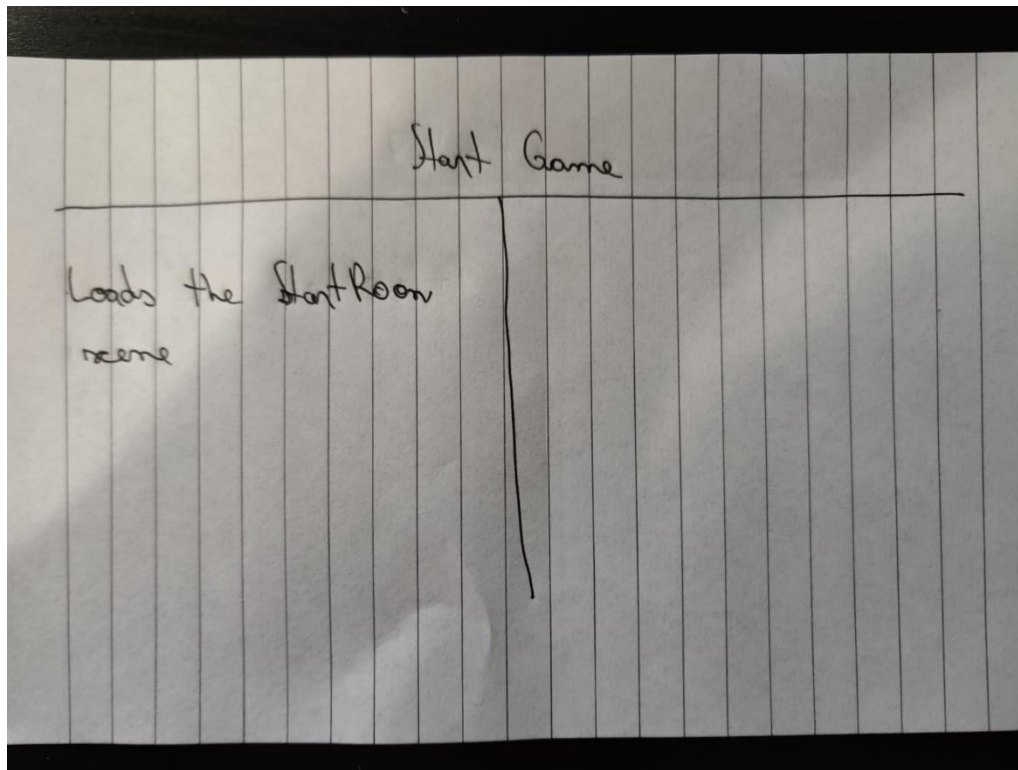 Start Game
Loads the StartRoom
scene